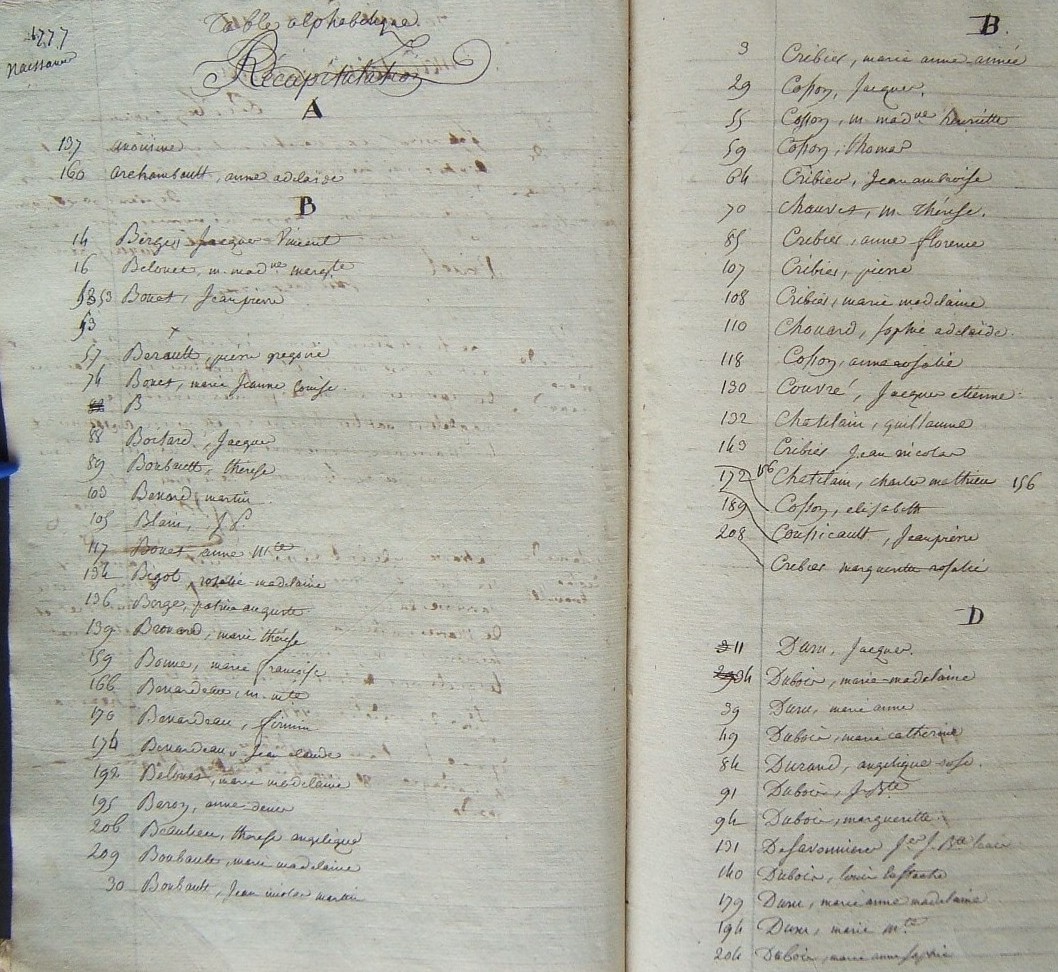 1777
Naissance
Table alphabétique
Récapitulation
A
137 anonime
160 archambault, anne adelaide
B
14 Berges Jacques Vincent
16 Belouet, m. mad.ne
53 Bouet, Jean pierre
53
57 Berault, pierre gregoire
74 Bouet, marie Jeanne Louise
B
88 Jacques
89 Boubault, thérèse
103 Benard, martin
105 Blain,
117 Bouet, anne m.te
134 Bigot, rosalie madelaine
136 Berge, auguste
139 Brouard, marie thérèse
159 Bonne, marie françoise
166 Benardeau, m.
170 Benardeau, firmin
174 Benardeau, Jean claude
192 Belouet, marie madelaine
195 Baron, anne
206 Beaulieu, therese angelique
209 Boubault, marie madelaine
30 Boubault, Jean nicolas martin
B
3 Cribier, marie anne aimée
29 Cosson, Jacques.
55 Cosson, m. mad.ne henriette
59 Cosson, thomas
64 Cribier, Jean ambroise
70 Chauvet, m. thérèse.
85 Cribier, anne florence
107 Cribier, pierre
108 Cribier, marie madelaine
110 Chouard, sophie adelaide.
118 Cosson, anne rosalie
130 Couvré, Jacques etienne
132 Chatelain, guillaume
143 Cribier Jean nicolas
172 156 Chatelain, charle mathieu 156
189 Cosson, elisabeth
208 Coussicault, Jean pierre
Cribier marguerite rosalie
D
11 Duru, Jacques.
34 Dubois, marie-madelaine
39 Duru, marie anne
49 Dubois, marie catherine
84 Durand, angelique rose.
91 Dubois, J. B.te
94 Dubois, marguerite.
131 Desavonniere
140 Dubois, louis
179 Duru, marie anne madelaine
194 Duru, marie m.te
204 Dubois, marie anne sophie